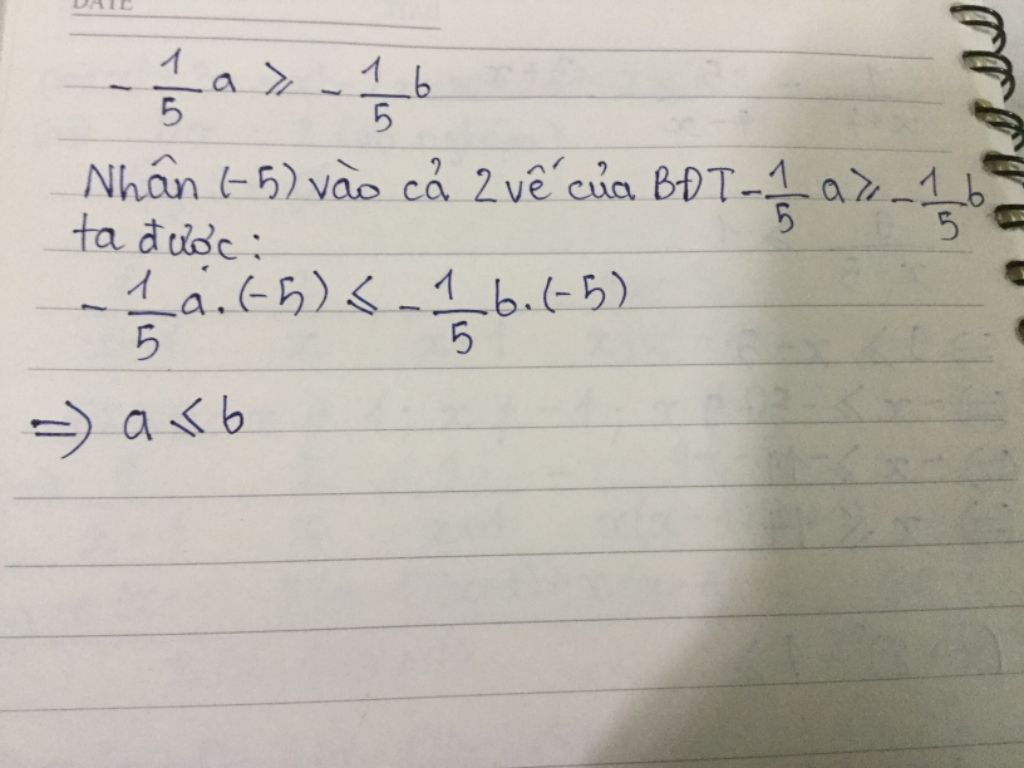 DATE
- 1/5 a ⩾ - 1/5 b
Nhân (-5) vào cả 2 vế của BĐT - 1/5 a ⩾ - 1/5 b
ta được:
- 1/5 a. (-5) ⩽ - 1/5 b. (-5)
=> a ⩽ b